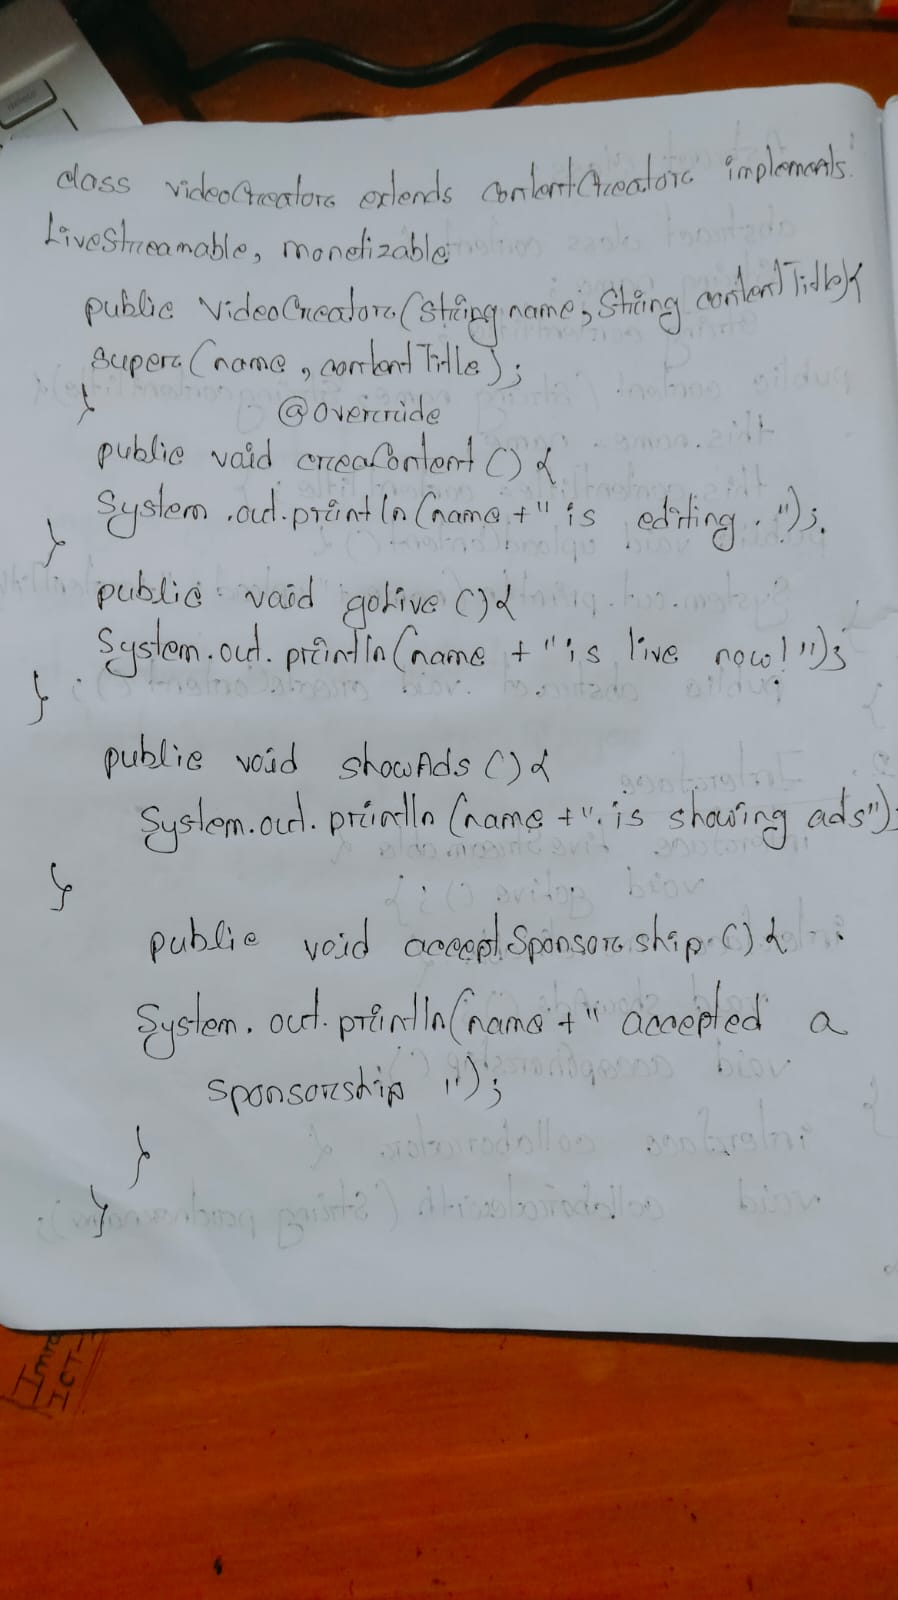 class videoCreator extends contentCreator implements
LiveStreamable, monetizable
public VideoCreator(String name, String contentTitle){
super(name, contentTitle);
}
@Override
public void creaContent () {
System.out.println(name +" is editing.");
}
public void goLive () {
System.out.println(name + "is live now!");
}
public void showAds () {
System.out.println (name +". is showing ads");
}
public void acceptSponsorship () {
System.out.println(name +" accepted a
sponsorship ");
}
}